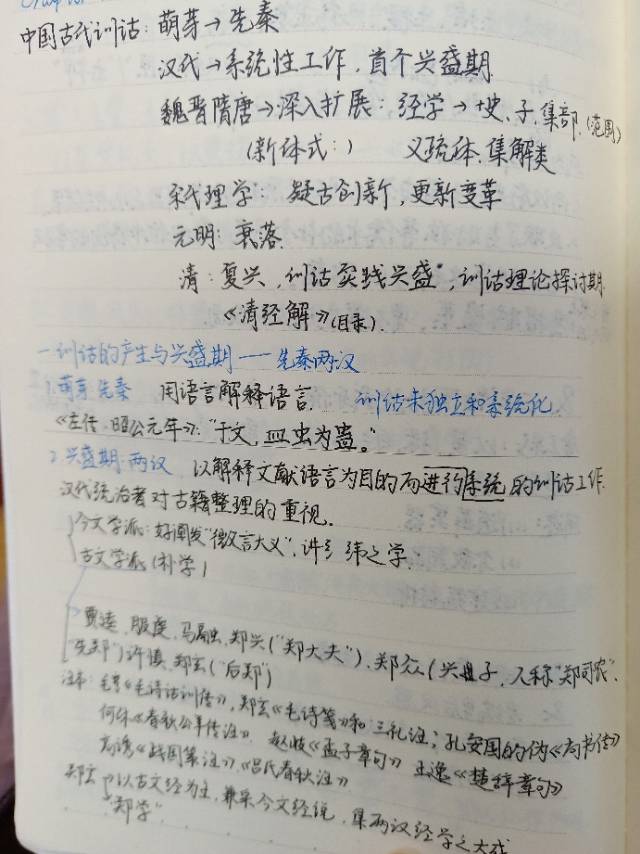 中国古代训诂：萌芽→先秦
汉代→系统性工作，首个兴盛期
魏晋隋唐→深入扩展：经学→史、子、集部.（范围）
（新体式：） 义疏体、集解类
宋代理学：疑古创新，更新变革
元明：衰落.
清：复兴，训诂实践兴盛”，训诂理论探讨期.
《清经解》（目录）.
一 训诂的产生与兴盛期——先秦两汉
1. 萌芽 先秦 用语言解释语言. 训诂未独立和系统化.
《左传·昭公元年》：“于文，皿虫为蛊。”
2. 兴盛期：两汉 以解释文献语言为目的而进行系统的训诂工作.
汉代统治者对古籍整理的重视.
今文学派：好阐发“微言大义”，讲 纬之学
古文学派（朴学）
贾逵、服虔、马融、郑兴（“郑大夫”）、郑众（兴 子，人称“郑司农”、
“先郑”）许慎、郑玄（“后郑”）
注本：毛亨《毛诗诂训传》，郑玄《毛诗笺》和三礼注；孔安国的伪《尚书传》
何休《春秋公羊传注》 赵岐《孟子章句》 王逸《楚辞章句》
高诱《战国策注》、《吕氏春秋注》
郑玄→以古文经为主，兼采今文经说，集两汉经学之大成
“郑学”